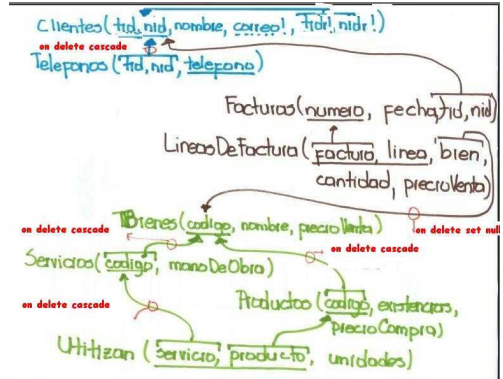 Clientes(tid,nid,nombre, correo!, tidr!, nidr!)
on delete cascade
Telefonos(tid,nid,telefono)
Facturas(numero, fecha,tid,nid)
LineasDeFactura(factura, linea, bien,
cantidad, precioVenta)
Bienes(codigo, nombre, precioVenta)
on delete cascade
on delete set null
on delete cascade
Servicios(codigo, manoDeObra)
on delete cascade
Productos(codigo, existencias,
precioCompra)
Utilizan (servicio, producto, unidades)